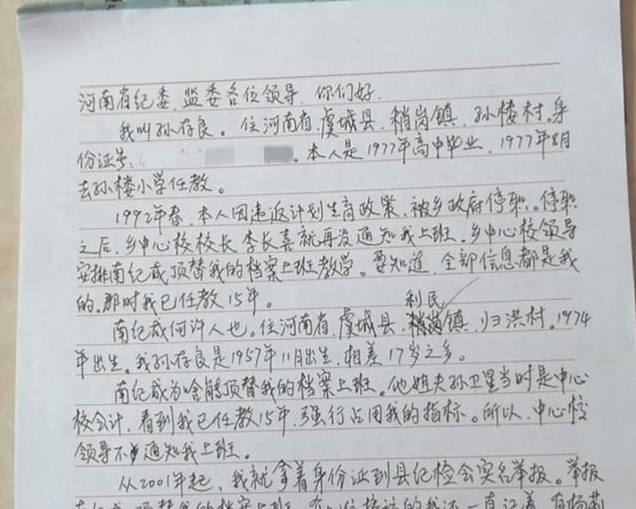 河南省纪委、监委各位领导、你们好、
我叫孙存良。住河南省、虞城县、稍岗镇、孙楼村。身
份证号: 。本人是1977年高中毕业、1977年8月
去孙楼小学任教。
1992年春、本人因违返计划生育政策、被乡政府停职。停职
之后、乡中心校校长李长喜就再没通知我上班。乡中心校领导
安排南纪成顶替我的档案上班教学。要知道、全部信息都是我
的。那时我已任教15年。
利民
南纪成何许人也。住河南省、虞城县、稍岗镇、归洪村。1974
年出生。我孙存良是1957年11月出生、相差17岁之多。
南纪成为啥能顶替我的档案上班。他姐夫孙卫星当时是中心
校会计、看到我已任教15年、强行占用我的指标。所以、中心校
领导不通知我上班。
从2001年起、我就拿着身份证到县纪检会实名举报。举报
顶替我的档案上班